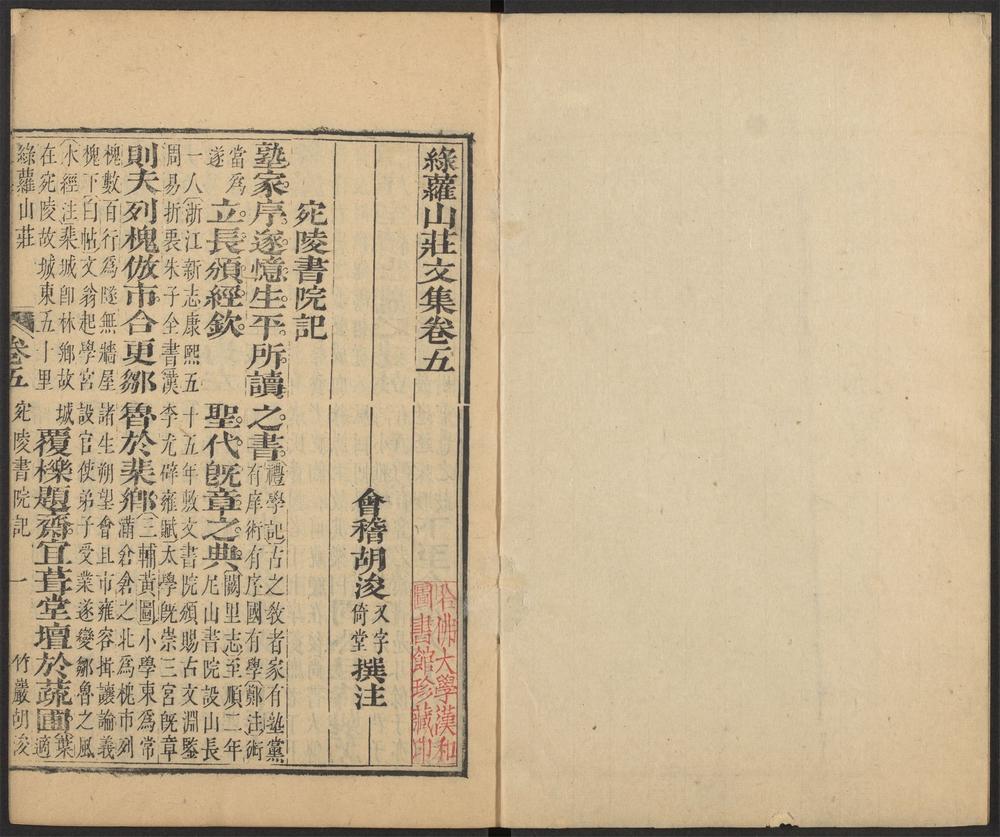 綠蘿山莊文集卷五
會稽胡浚又字倚堂撰注
哈佛大學漢和圖書館珍藏印
宛陵書院記
塾家序遂憶生平所讀之書禮學記古之教者家有塾黨有庠術有序國有學鄭注術
當為遂立長頒經欽聖代旣章之典闕里志至順二年尼山書院設山長
一人浙江新志康熙五十五年敕文書院頒賜古文淵鑒周易折衷朱子全書漢李尤辟雍賦太學旣崇三宮旣章
則夫列槐倣市合更鄒魯於棐鄉三輔黃圖小學東為常滿倉倉之北為槐市列
槐數百行為隧無牆屋諸生朔望會且市雍容揖讓論義槐下白帖文翁起學宮設官使弟子受業遂變鄒魯之風
水經注棐城卽林鄉故城在宛陵故城東五十里覆櫟題齋宜葺堂壇於蔬圃葉適
綠蘿山莊 卷五 宛陵書院記 一 竹巖胡浚